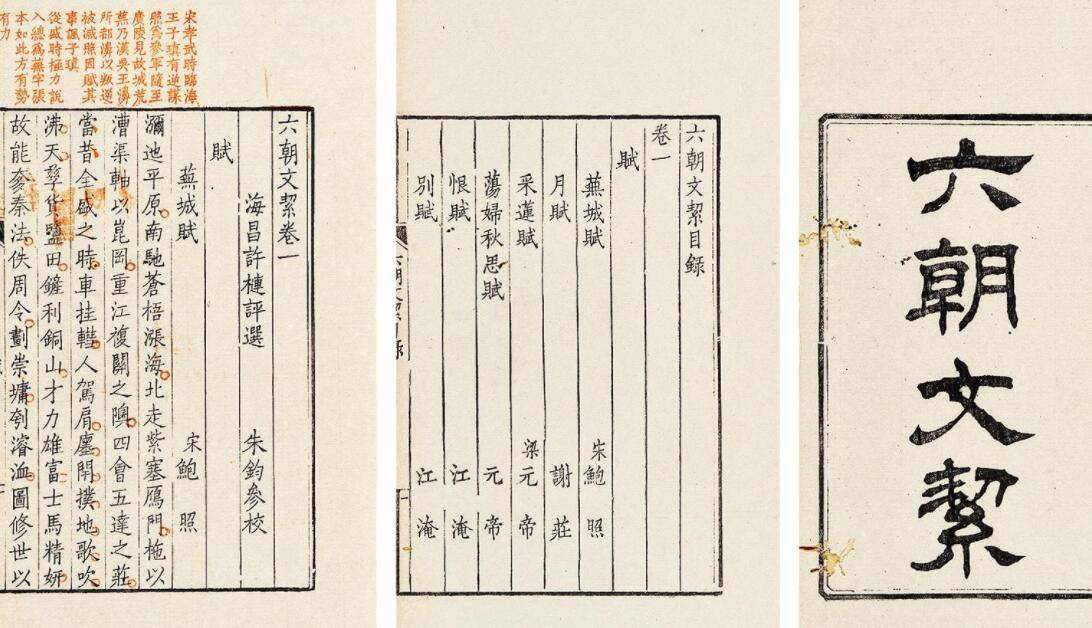 六朝文絜
六朝文絜目錄
卷一
賦
蕪城賦 宋鮑照
月賦 謝莊
采蓮賦 梁元帝
蕩婦秋思賦 元帝
恨賦 江淹
別賦 江淹
宋孝武時臨海
王子頊有逆謀
照為參軍隨至
廣陵見故城荒
蕪乃漢吳王濞
所都濞以叛逆
被滅照因賦其
事諷子頊
從盛時極力說
入總為蕪字張
本如此方有勢
有力
六朝文絜卷一
海昌許槤評選 朱鈞參校
賦
蕪城賦 宋鮑照
瀰迆平原南馳蒼梧漲海北走紫塞鴈門柂以
漕渠軸以崑岡重江複關之隩四會五達之莊
當昔全盛之時車挂轊人駕肩廛閈撲地歌吹
沸天孳貨鹽田鏟利銅山才力雄富士馬精妍
故能奓秦法佚周令劃崇墉刳濬洫圖修世以